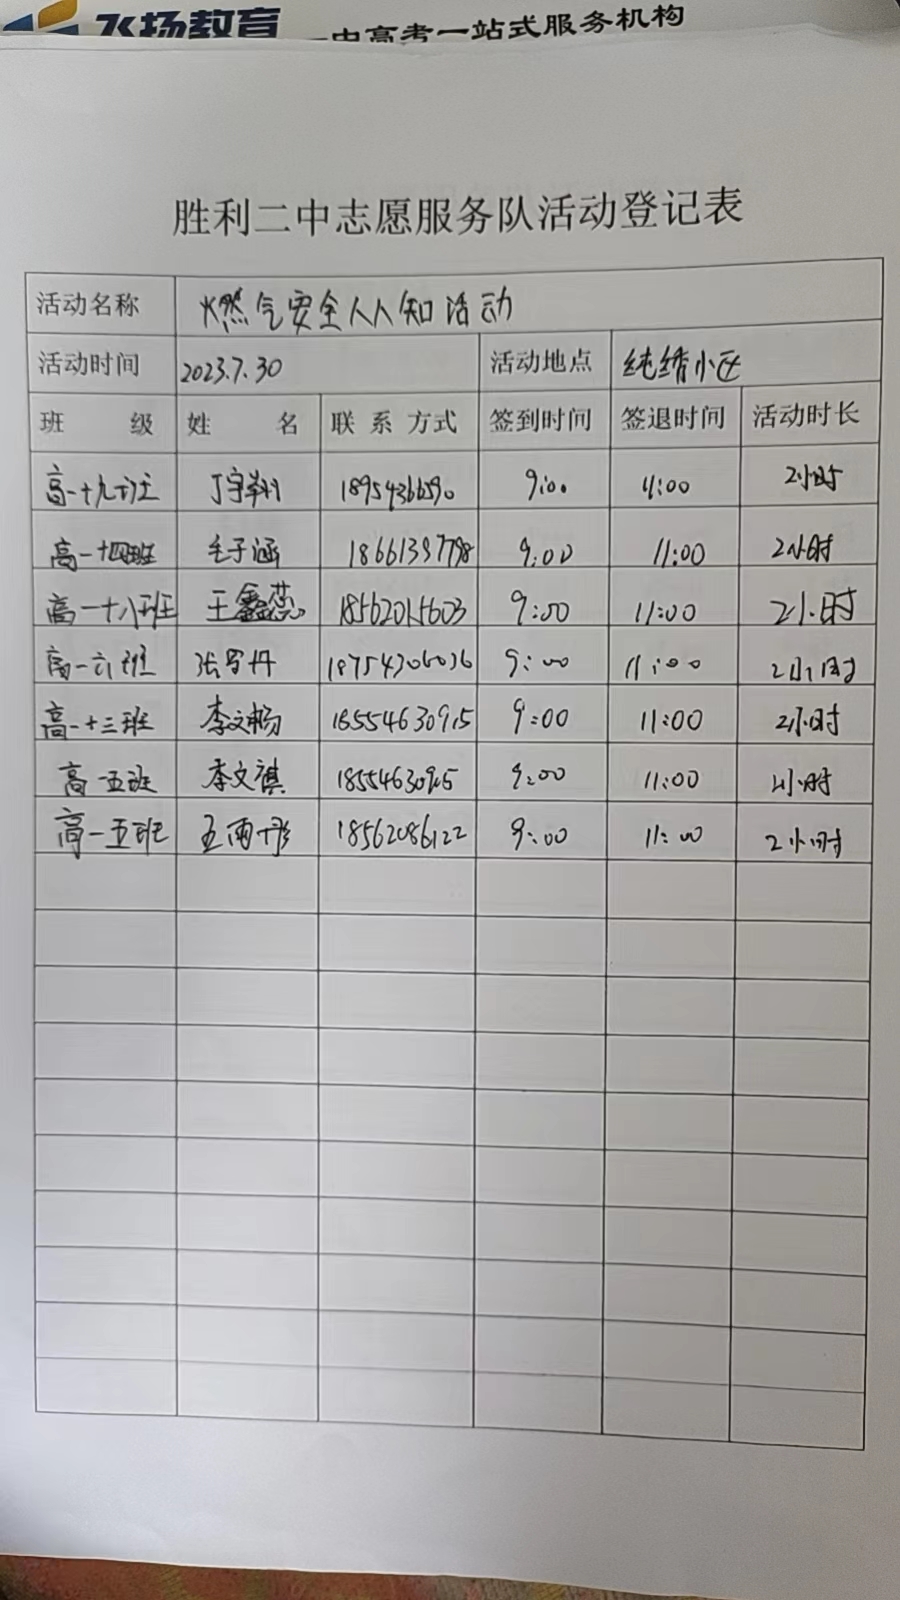 飞扬教育 一中高考一站式服务机构
胜利二中志愿服务队活动登记表
活动名称 燃气安全人人知活动
活动时间 2023.7.30 活动地点 小区
班 级 姓 名 联系方式 签到时间 签退时间 活动时长
高一十九班 丁宇翔 18954366590 9:00 11:00 2小时
高一十四班 毛子涵 18661397798 9:00 11:00 2小时
高一十八班 王鑫蕊 18562015603 9:00 11:00 2小时
高一六班 张 丹 18754306036 9:00 11:00 2小时
高一十三班 李文畅 18554630915 9:00 11:00 2小时
高一五班 李文祺 18554630915 9:00 11:00 2小时
高一五班 王雨彤 18562086122 9:00 11:00 2小时